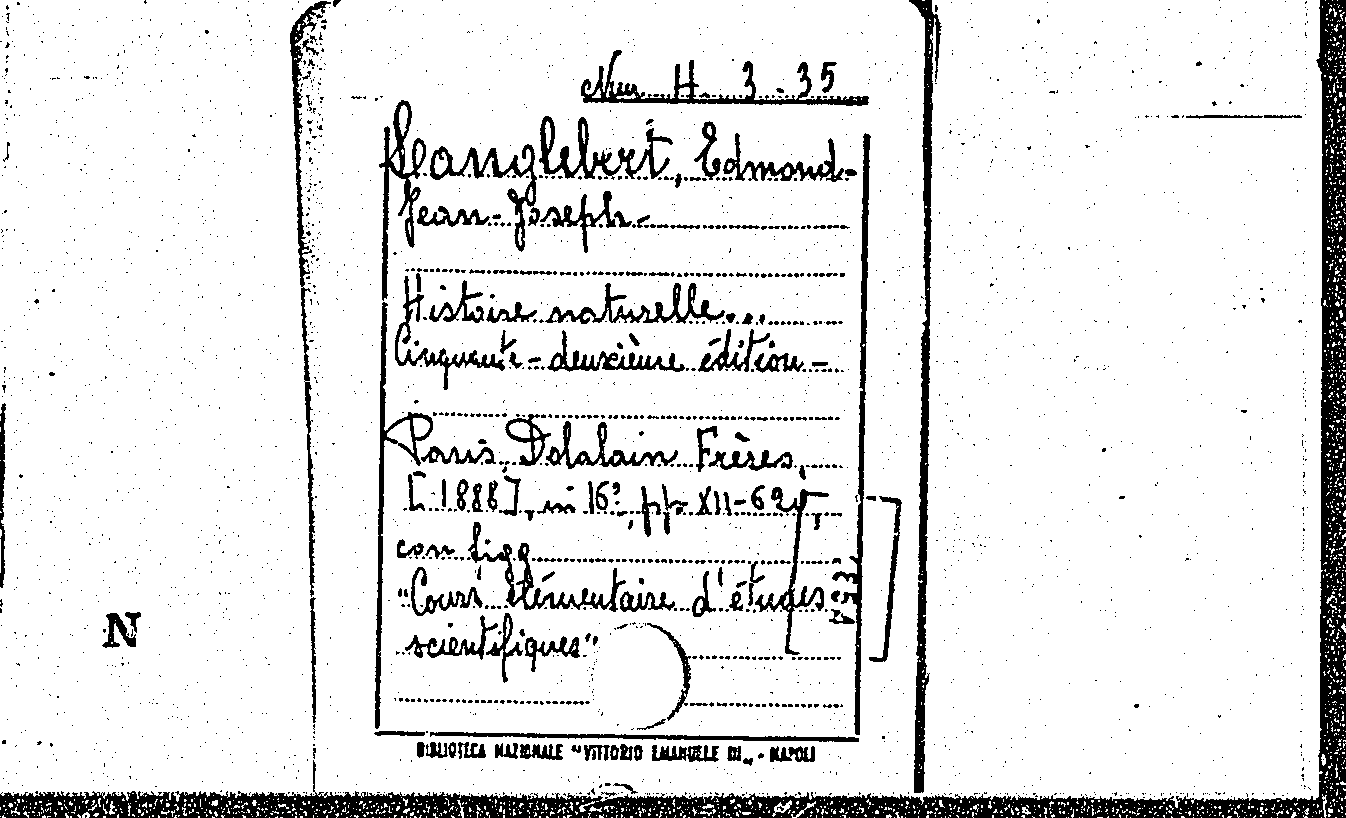 Nuv. H. 3. 35
Langlebert, Edmond-
Jean-Joseph-
Histoire naturelle...
Cinquante-deuxième édition-
Paris, Dolalain Frères,
[1888], in 16°, pp. XII-624,
con figg
"Cours élémentaire d'études
scientifiques"
BIBLIOTECA NAZIONALE "VITTORIO EMANUELE III" - NAPOLI
N